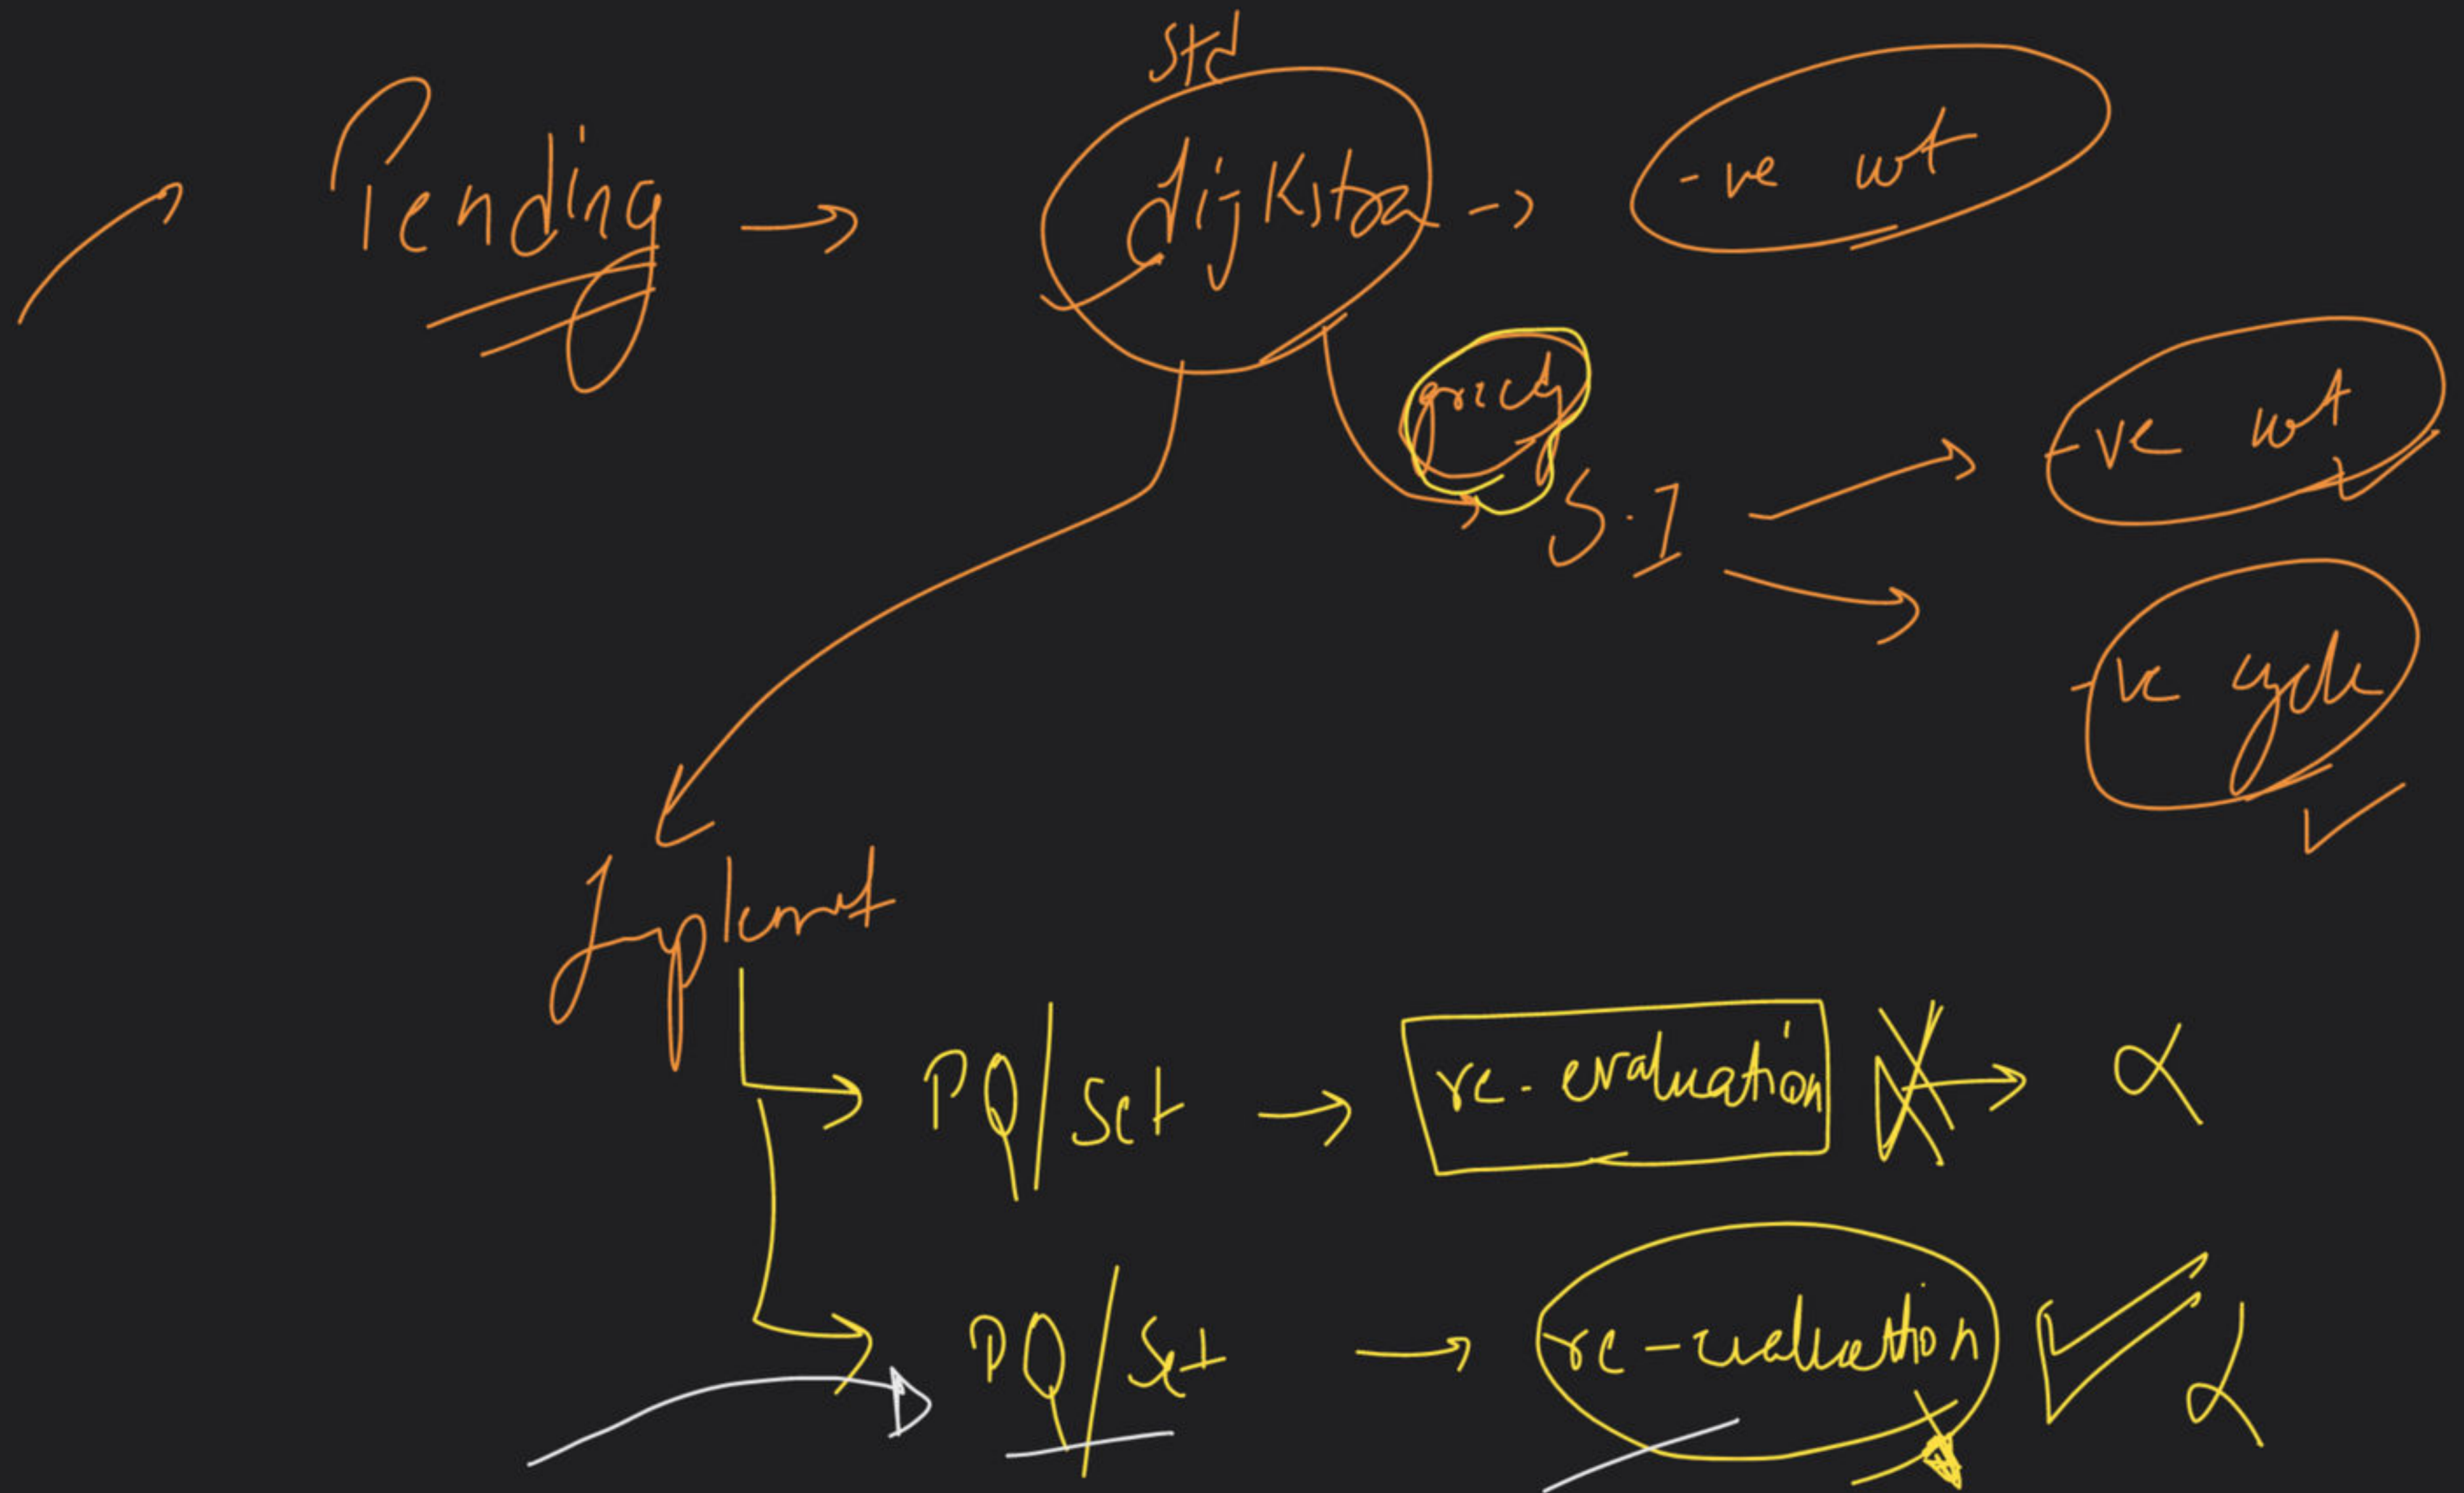 std
Pending → dijkstra → -ve wt
greedy
S.I → -ve wt
→ -ve cycle
Implement
PQ/set → re-evaluation X → α
PQ/set → re-evaluation ✓ α